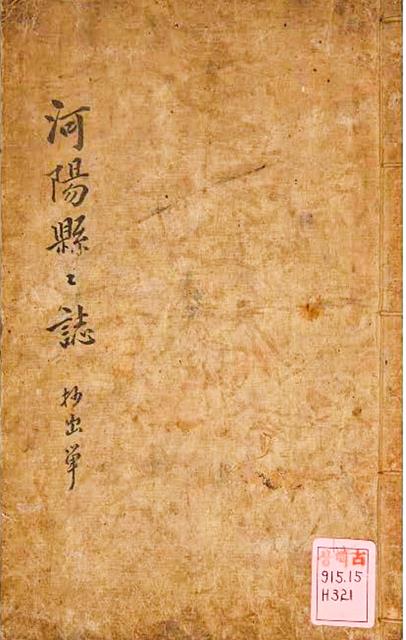 河陽縣〻誌 抄出単
古
915.15
H321